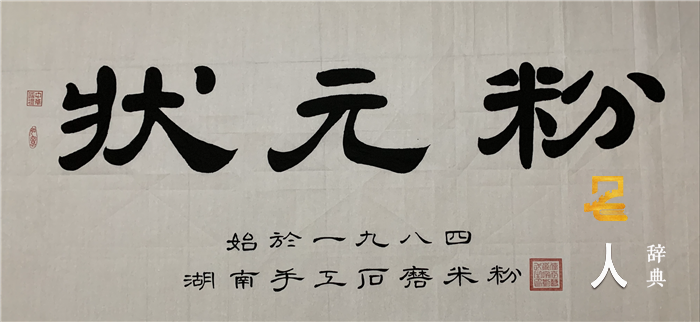 状元粉
始於一九八四
湖南手工石磨米粉
名人辞典